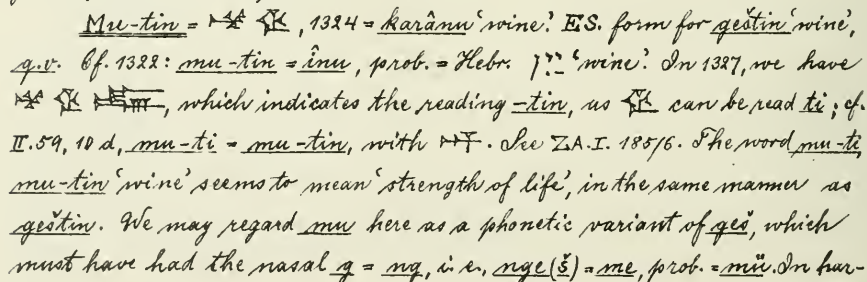 Mu-tin = 𒈬 𒁷, 1324 = karânu 'wine.' ES. form for geštin 'wine',
q.v. Cf. 1322: mu-tin = înu, prob. = Hebr. 'wine.' In 1327, we have
which indicates the reading -tin, as can be read ti; cf.
II. 59, 10 d, mu-ti = mu-tin, with. See ZA. I. 185/6. The word mu-ti,
mu-tin 'wine' seems to mean 'strength of life', in the same manner as
geštin. We may regard mu here as a phonetic variant of geš, which
must have had the nasal g = ng, i.e., nge(š) = me, prob. = mü. In har-